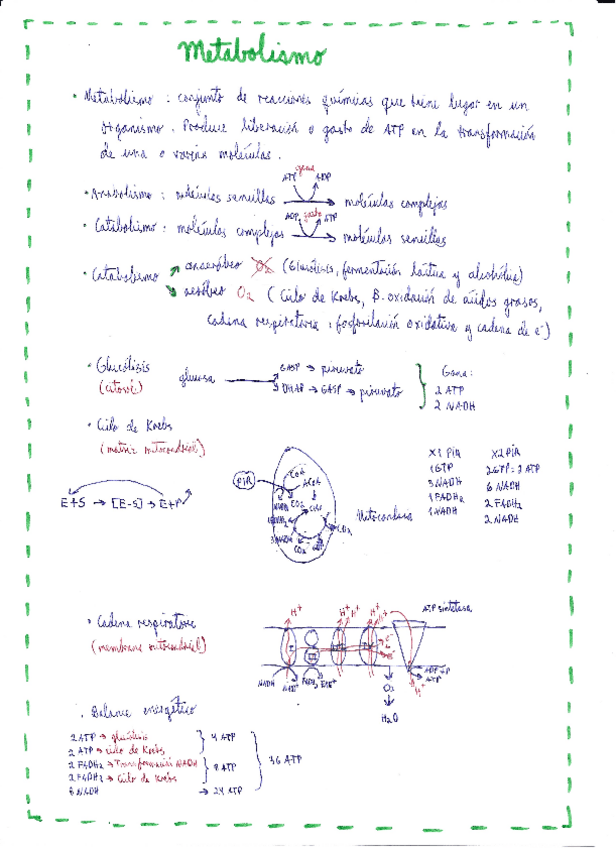 Metabolismo
· Metabolismo : conjunto de reacciones químicas que tiene lugar en un
organismo. Produce liberación o gasto de ATP en la transformación
de una o varias moléculas.
ATP ADP
· Anabolismo : moléculas sencillas → moléculas complejas
ADP ATP
· Catabolismo : moléculas complejas → moléculas sencillas
· Catabolismo
anaeróbico O₂ (Glucólisis, fermentación láctica y alcohólica)
aeróbico O₂ ( Ciclo de Krebs, β-oxidación de ácidos grasos,
cadena respiratoria : fosforilación oxidativa y cadena de e⁻)
· Glucólisis
(citosol)
glucosa
GA3P → piruvato
DHAP → GA3P → piruvato
Gana :
2 ATP
2 NADH
· Ciclo de Krebs
(matriz mitocondrial)
E+S → [E-S] → E+P
PIR
CoA
ACoA
CO₂
NADH
FADH₂
3 NADH
CO₂
CO₂
Mitocondria
X1 PIR
1 GTP
3 NADH
1 FADH₂
1 NADH
X2 PIR
2 GTP = 2 ATP
6 NADH
2 FADH₂
2 NADH
· Cadena respiratoria
(membrana mitocondrial)
H⁺
H⁺ H⁺
ATP sintetasa
NADH
FADH₂
ADP + P
ATP
H⁺
O₂
H₂O
· Balance energético
2 ATP → glucólisis
2 ATP → Ciclo de Krebs
4 ATP
2 FADH₂ → Transformación NADH
2 FADH₂ → Ciclo de Krebs
8 ATP
8 NADH → 24 ATP
36 ATP